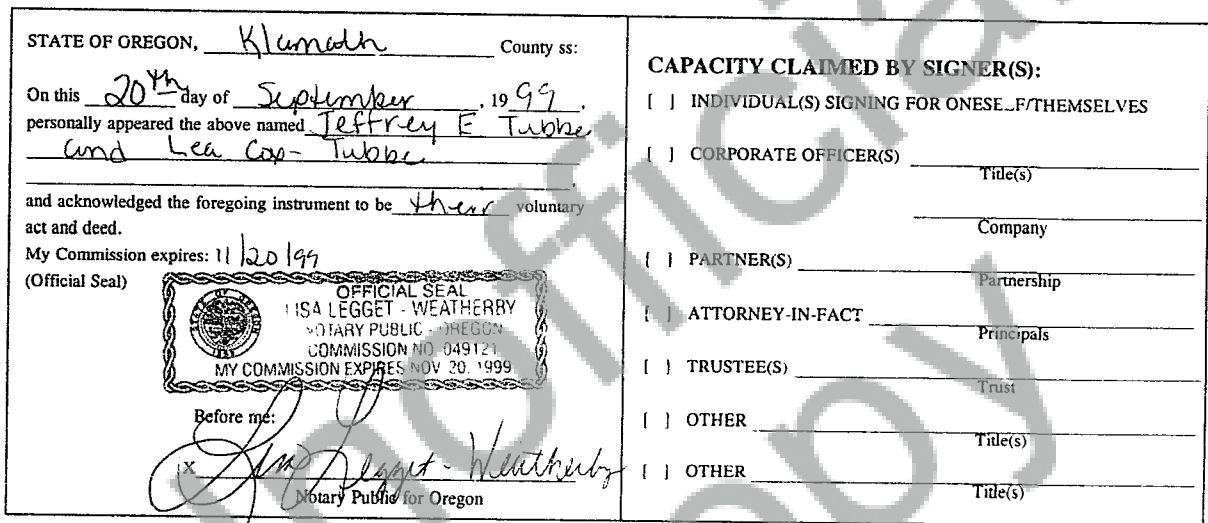 STATE OF OREGON, Klamath County ss:
On this 20th day of September, 19 99.
personally appeared the above named Jeffrey E Tubbe
and Lea Cox-Tubbe
and acknowledged the foregoing instrument to be their voluntary
act and deed.
My Commission expires: 11/20/99
(Official Seal)
OFFICIAL SEAL
LISA LEGGET - WEATHERBY
NOTARY PUBLIC - OREGON
COMMISSION NO. 049121
MY COMMISSION EXPIRES NOV 20, 1999
Before me:
X Lisa Legget-Weatherby
Notary Public for Oregon
CAPACITY CLAIMED BY SIGNER(S):
[ ] INDIVIDUAL(S) SIGNING FOR ONESELF/THEMSELVES
[ ] CORPORATE OFFICER(S)
Title(s)
Company
[ ] PARTNER(S)
Partnership
[ ] ATTORNEY-IN-FACT
Principals
[ ] TRUSTEE(S)
Trust
[ ] OTHER
Title(s)
[ ] OTHER
Title(s)